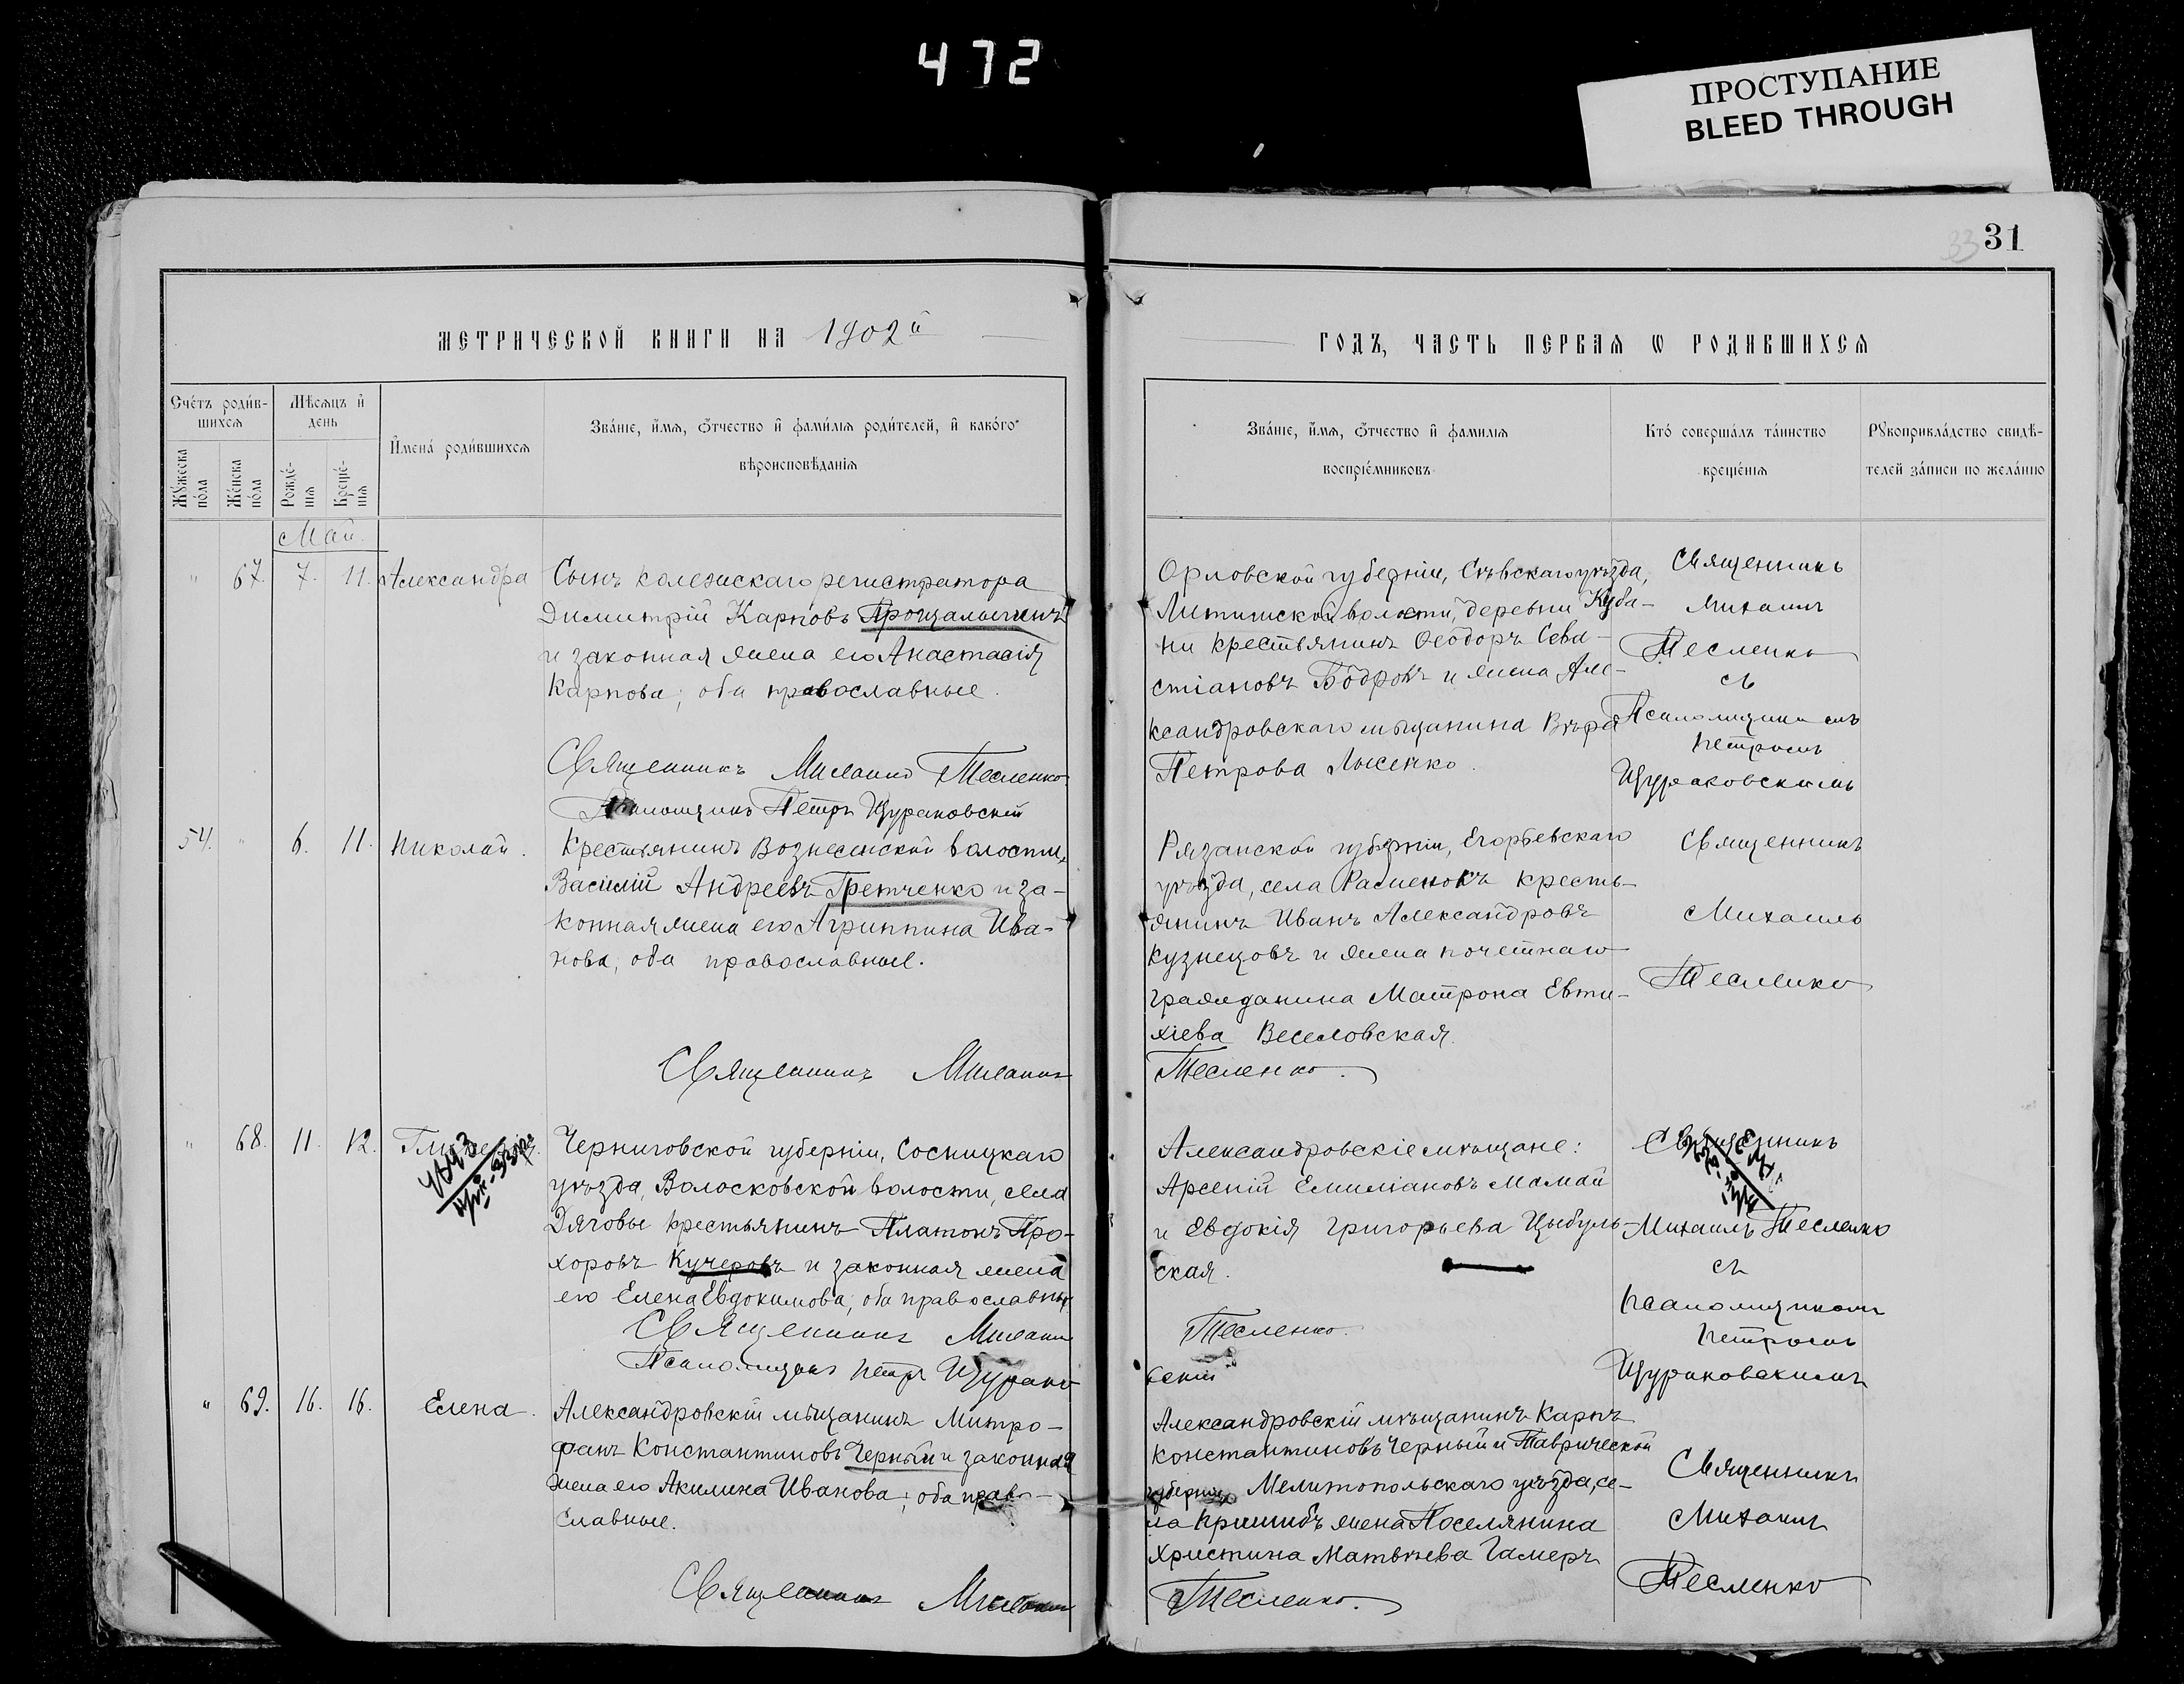 472
ПРОСТУПАНИЕ
BLEED THROUGH
33 31
МЕТРИЧЕСКОЙ КНИГИ НА 1902й
ГОДЪ, ЧАСТЬ ПЕРВАЯ Ѡ РОДИВШИХСЯ
Счетъ родив-
шихся
Мужеска
пола
Женска
пола
Мѣсяцъ и
день
Рожде-
нія
Креще-
нія
Имена родившихся
Званіе, имя, отчество и фамилія родителей, и какого
вѣроисповѣданія
Званіе, имя, отчество и фамилія
воспріемниковъ
Кто совершалъ таинство
крещенія
Рукоприкладство свидѣ-
телей записи по желанію
Май.
" 67. 7. 11. Александра
Сынъ колежскаго регистратора
Димитрій Карповъ
и законная жена его Анастасія
Карпова; оба православные.
Священникъ Михаилъ Тесленко
Псаломщикъ Петръ Щураковскій
Орловской губерніи, Сѣвскаго уѣзда,
волости, деревни Куба-
ни крестьянинъ Ѳеодоръ Сева-
стіановъ Бодровъ и жена Але-
ксандровскаго мѣщанина Вѣра
Петрова Лысенко.
Священникъ
Михаилъ
Тесленко
съ
Псаломщикомъ
Петромъ
Щураковскимъ
54. " 6. 11. Николай.
Крестьянинъ Вознесенской волости,
Василій Андреевъ Гретченко и за-
конная жена его Агриппина Ива-
нова, оба православные.
Священникъ Михаилъ
Рязанской губерніи, Егорьевскаго
уѣзда, села кресть-
янинъ Иванъ Александровъ
Кузнецовъ и жена почетнаго
гражданина Матрона Евти-
хіева Веселовская.
Тесленко.
Священникъ
Михаилъ
Тесленко
" 68. 11. 12.
Черниговской губерніи, Сосницкаго
уѣзда, Волосковской волости, села
Дяговы крестьянинъ Платонъ Про-
хоровъ Кучеровъ и законная жена
его Елена Евдокимова, оба православные
Священникъ Михаилъ
Псаломщикъ Петръ Щурако
Александровскіе мѣщане:
Арсеній Емиліановъ Мамай
и Евдокія Григорьева Цыбуль-
ская.
Тесленко.
вскій
Священникъ
Михаилъ Тесленко
съ
псаломщикомъ
Петромъ
Щураковскимъ
" 69. 16. 16. Елена.
Александровскій мѣщанинъ Митро-
фанъ Константиновъ Черный и законная
жена его Акилина Иванова; оба право-
славные.
Священникъ Михаилъ
Александровскій мѣщанинъ Карпъ
Константиновъ Черный и Таврической
губерніи, Мелитопольскаго уѣзда, се-
ла Пришибъ жена Поселянина
Христина Матвѣева Гамеръ
Тесленко.
Священникъ
Михаилъ
Тесленко